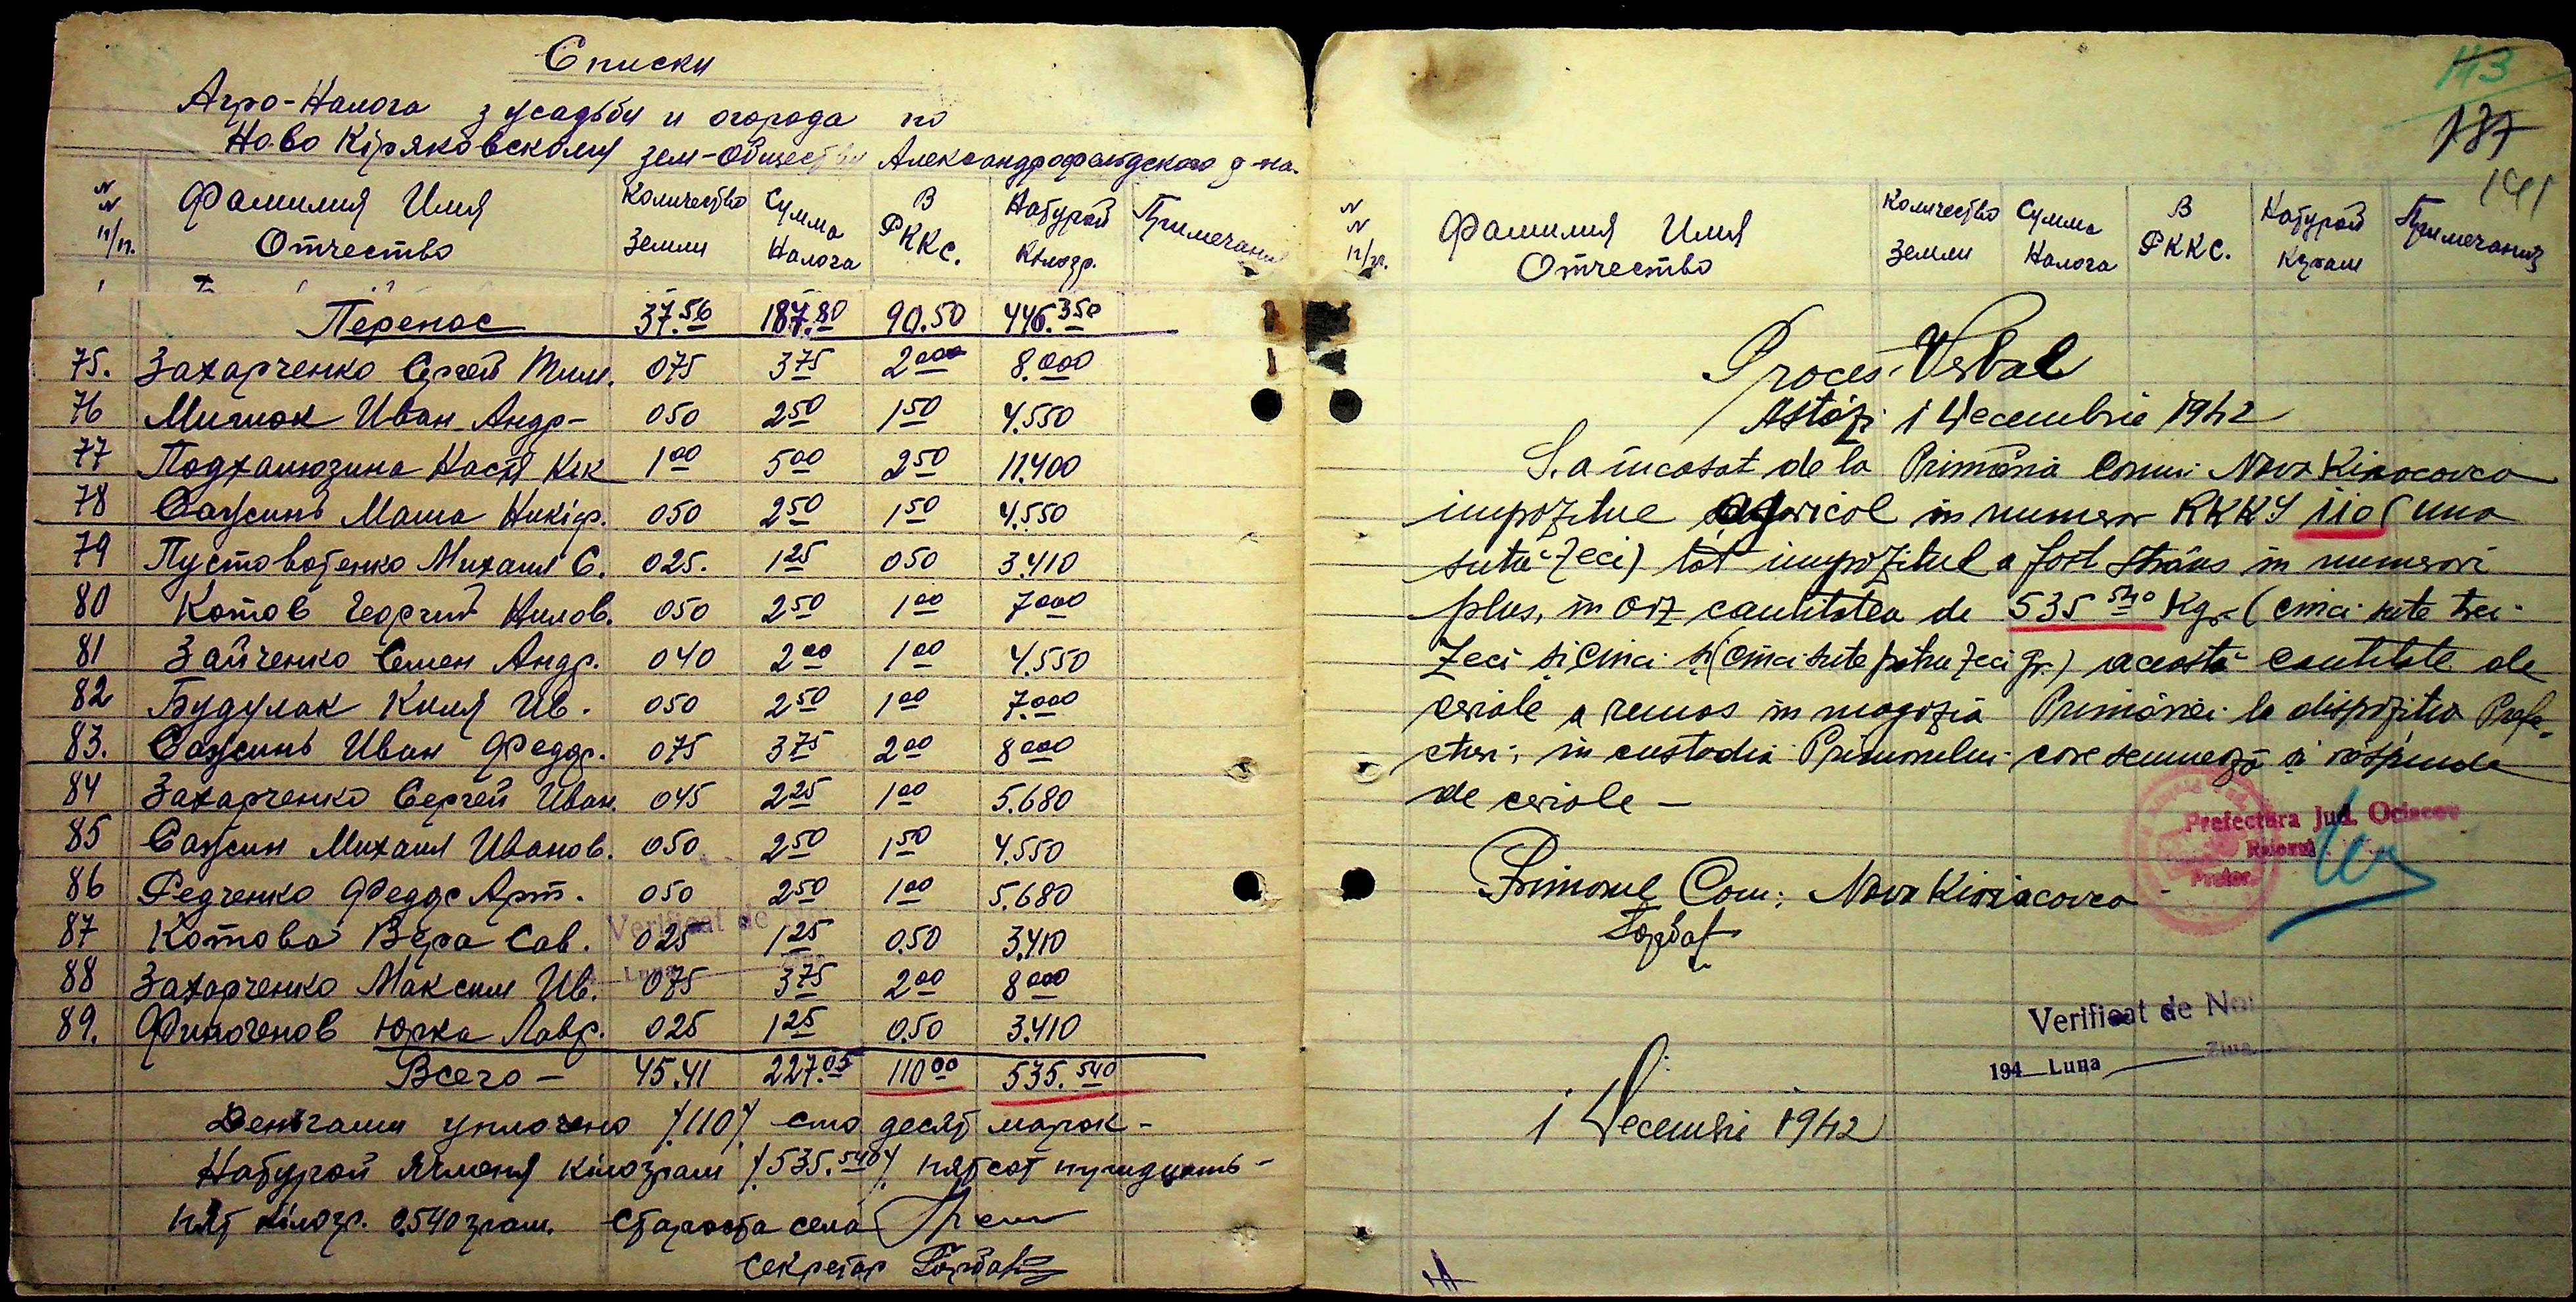 Списки
Агро-Налога з усадьбы и огорода по
Ново Кіряковскому зем-обществу Александрофельдского р-на.
N N п/п. Фамилия Имя Отчество Количество Земли Сумма Налога В РККС. Натурой Кілогр. Примечания
Перенос 37.56 187.80 90.50 446.350
75. Захарченко Сергей Тим. 075 375 2000 8.000
76 Мигнюк Иван Андр- 050 250 150 4.550
77 Подхалюзина Настя 100 500 250 11.400
78 Маша Никіф. 050 250 150 4.550
79 Пустовотенко Михаил С. 025. 125 050 3.410
80 Котов Георгий Нилов. 050 250 100 7000
81 Зайченко Семен Андр. 040 200 100 4.550
82 Будулак Киля Ив. 050 250 100 7.000
83. Иван Федор. 075 375 200 8000
84 Захарченко Сергей Иван. 045 225 100 5.680
85 Михаил Иванов. 050 250 150 4.550
86 Редченко Федос Арт. 050 250 100 5.680
87 Котова Вера Сав. 025 125 0.50 3.410
88 Захарченко Максим Ив. 075 375 200 8000
89. Финогенов Юрка Лавр. 025 125 0.50 3.410
Всего- 45.41 227.05 11000 535.540
Verificat de No
Luna
Деньгами уплочено /110/ сто десят марок-
Натурой ячменя кілограм /535.540/ пятсот тридцать-
пят кілогр. 0.540 грам. Староста села
секретар
113
137
141
N N п/п. Фамилия Имя Отчество Количество Земли Сумма Налога В РККС. Натурой Кграм Примечания
Proces-Verbal
Astăzi 1 Decembrie 1942
S.a încasat de la Primăria Comu: Nova Kiriacovca
impozitue agricol in numerar RKKS 110 (una
sută zeci) tot impozitul a fost strâns in numerar
plus, in orz cantitatea de 535 540 Kgr- (cinci sute trei-
zeci și cinci și (cinci sute patru zeci gr.) această cantitate de
ceriale a remas in magazia Primăriei la dispoziția Prefe-
cturi, in custodia Primarului care semnează și răspunde
de ceriale -
Prefectura Jud. Ociacov
Raionul
Pretor
Primarul Com: Nova Kiriacovca
Verificat de Noi
194 Luna Ziua
1 Decembri 1942